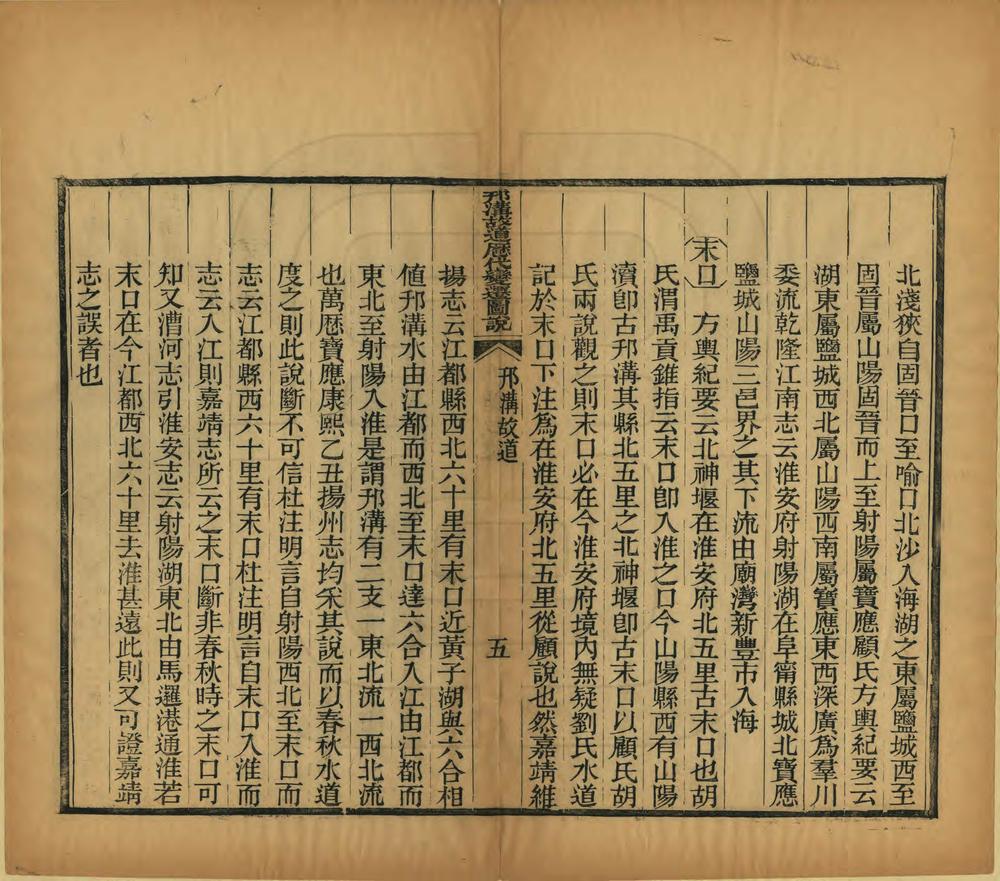 北淺狹自固晉口至喻口北沙入海湖之東屬鹽城西至
固晉屬山陽固晉而上至射陽屬寶應顧氏方輿紀要云
湖東屬鹽城西北屬山陽西南屬寶應東西深廣爲羣川
委流乾隆江南志云淮安府射陽湖在阜甯縣城北寶應
鹽城山陽三邑界之其下流由廟灣新豐市入海
末口 方輿紀要云北神堰在淮安府北五里古末口也胡
氏渭禹貢錐指云末口卽入淮之口今山陽縣西有山陽
瀆卽古邗溝其縣北五里之北神堰卽古末口以顧氏胡
氏兩說觀之則末口必在今淮安府境內無疑劉氏水道
記於末口下注爲在淮安府北五里從顧說也然嘉靖維
邗溝故道歷代變遷圖說 邗溝故道 五
揚志云江都縣西北六十里有末口近黃子湖與六合相
値邗溝水由江都而西北至末口達六合入江由江都而
東北至射陽入淮是謂邗溝有二支一東北流一西北流
也萬厯寶應康熙乙丑揚州志均采其說而以春秋水道
度之則此說斷不可信杜注明言自射陽西北至末口而
志云江都縣西六十里有末口杜注明言自末口入淮而
志云入江則嘉靖志所云之末口斷非春秋時之末口可
知又漕河志引淮安志云射陽湖東北由馬邏港通淮若
末口在今江都西北六十里去淮甚遠此則又可證嘉靖
志之誤者也